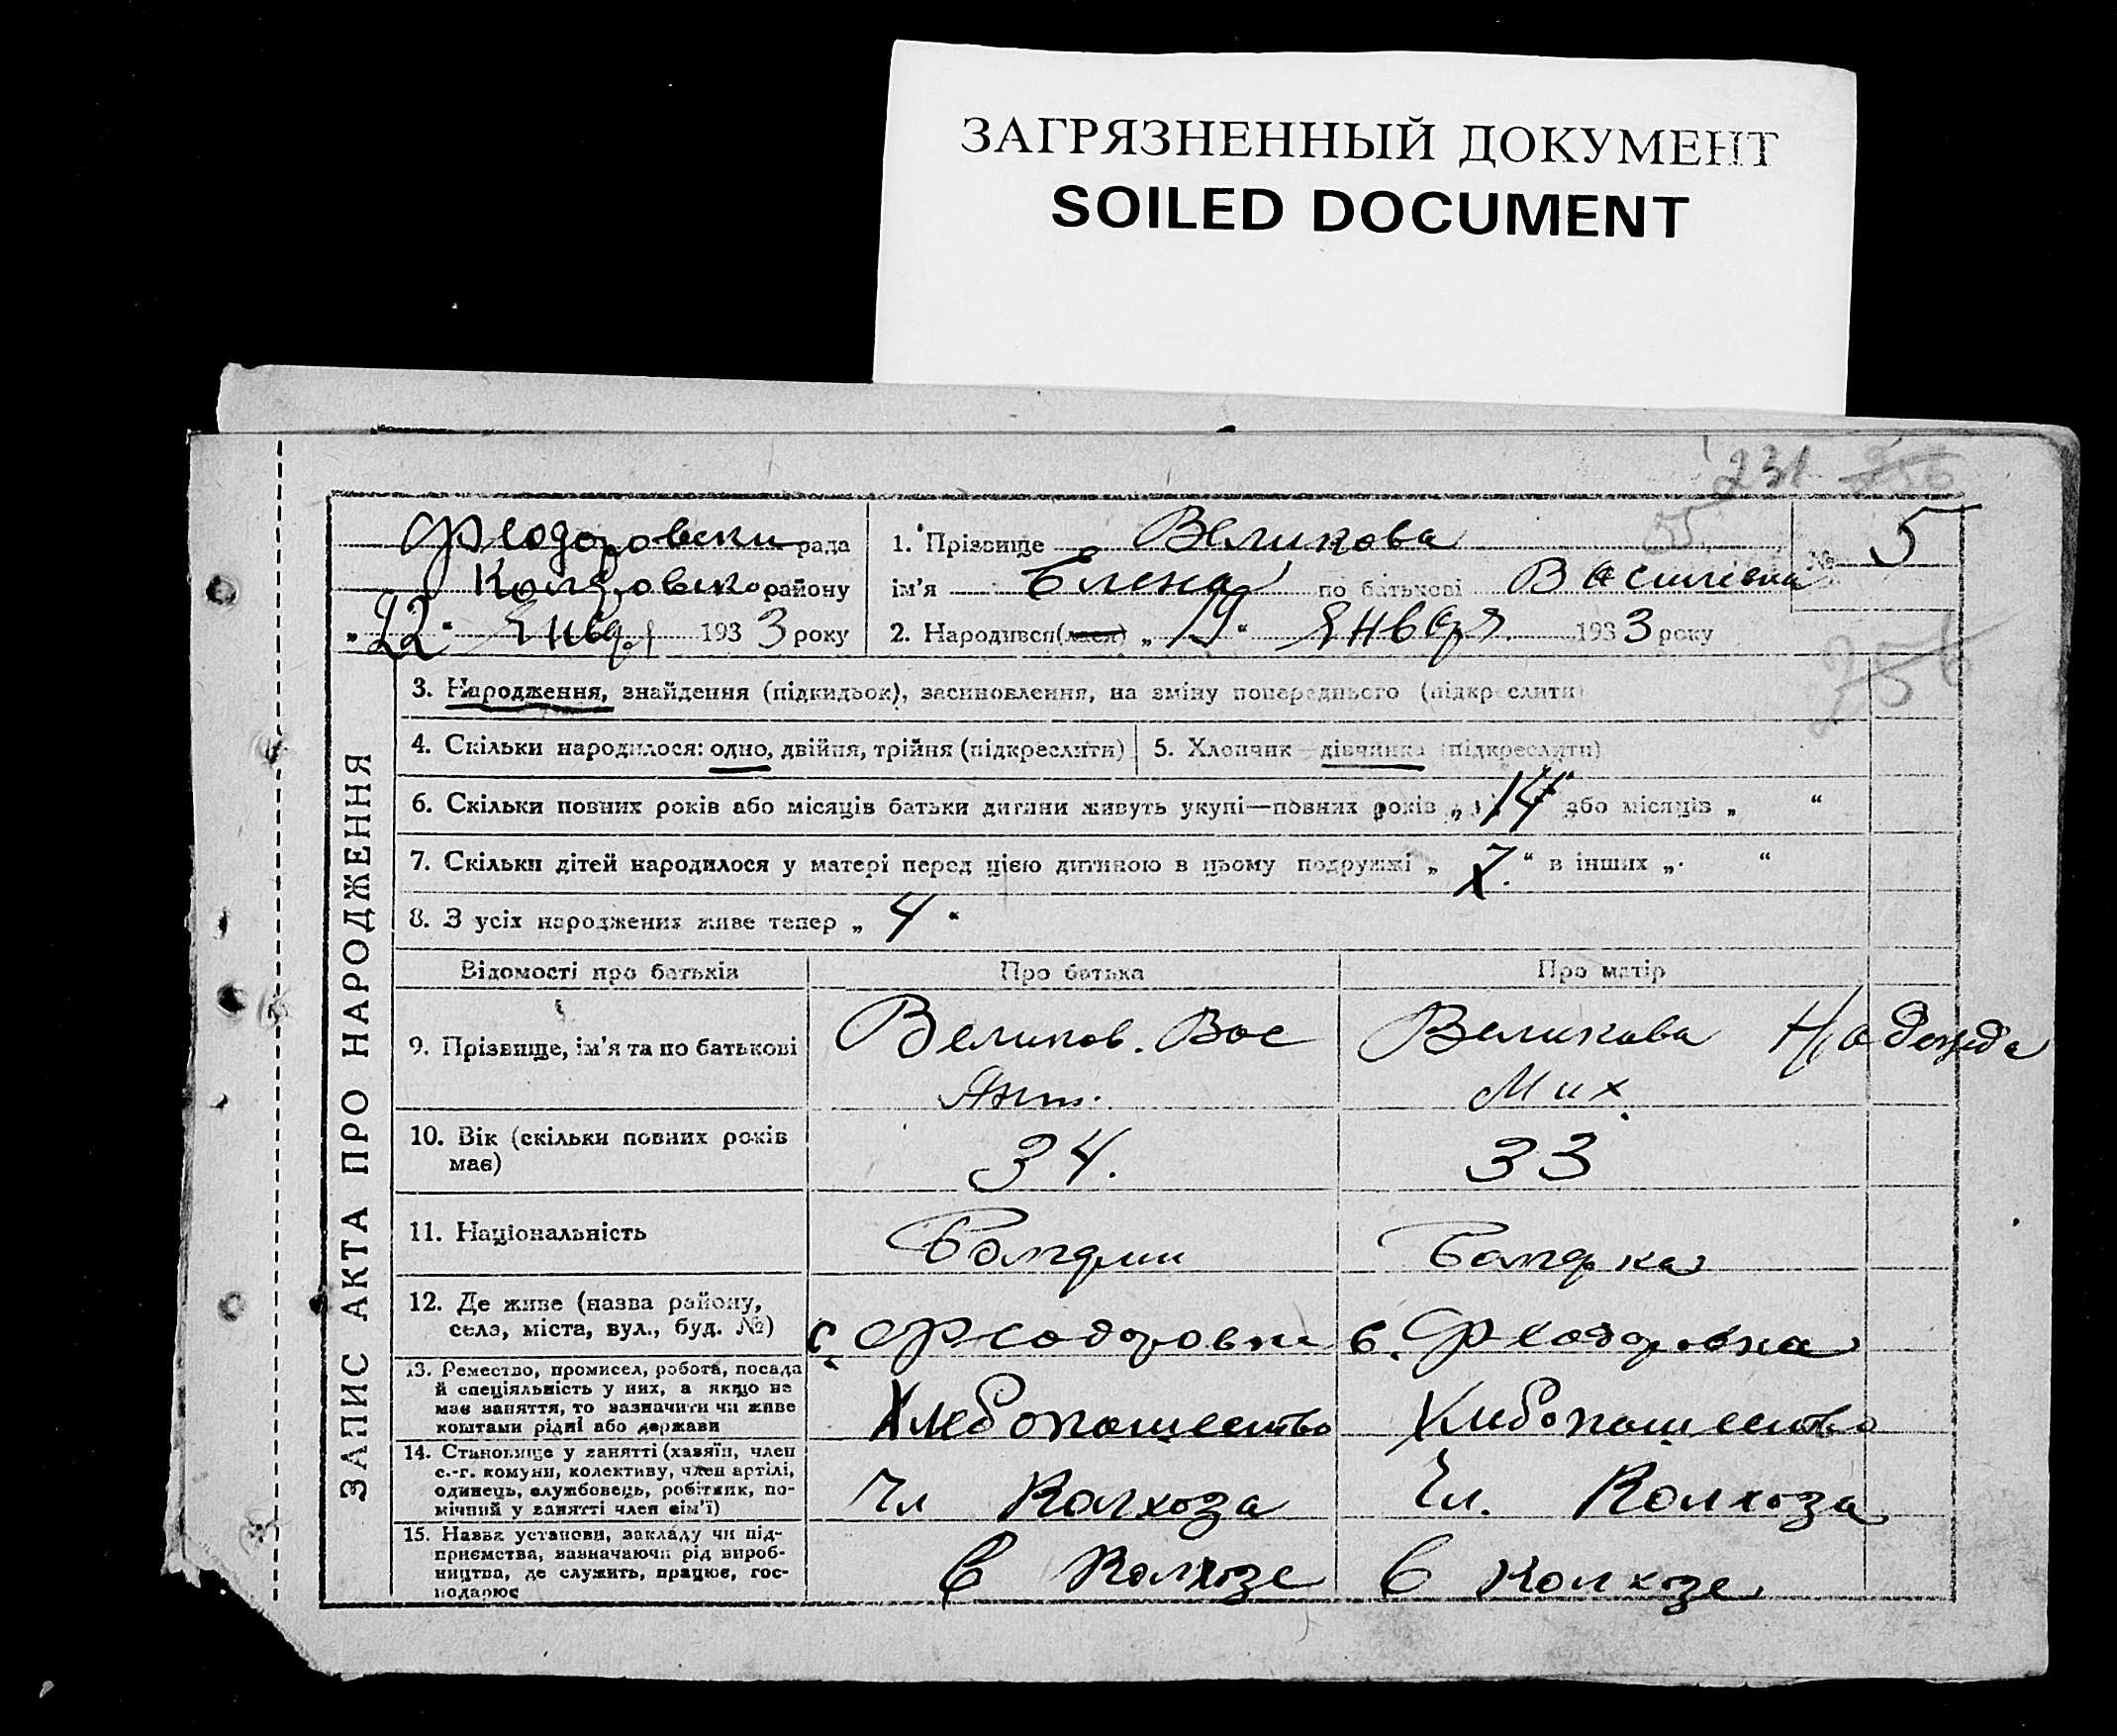 ЗАГРЯЗНЕННЫЙ ДОКУМЕНТ
SOILED DOCUMENT
231 256
Феодоровски рада
району
"22" Января 1933 року
1. Прізвище Великова
ім'я Елена по батькові Василівна
2. Народився(лася) "19" Января 1933 року
№ 5
55
256
ЗАПИС АКТА ПРО НАРОДЖЕННЯ
3. Народження, знайдення (підкидьок), засиновлення, на зміну попереднього (підкреслити)
4. Скільки народилося: одно, двійня, трійня (підкреслити)
5. Хлопчик—дівчинка (підкреслити)
6. Скільки повних років або місяців батьки дитини живуть укупі—повних років „ 14 “ або місяців „ “
7. Скільки дітей народилося у матері перед цією дитиною в цьому подружжі „ 7. “ в інших „ “
8. З усіх народжених живе тепер „ 4 “
Відомості про батьків
Про батька
Про матір
9. Прізвище, ім'я та по батькові
Великов. Вас
Ант.
Великова Надежда
Мих.
10. Вік (скільки повних років
має)
34.
33
11. Національність
Болгрин
Болгрка
12. Де живе (назва району,
села, міста, вул., буд. №)
с. Феодоровка
с. Феодоровка
13. Ремество, промисел, робота, посада
й спеціяльність у них, а якщо не
має заняття, то зазначити чи живе
коштами рідні або держави
Хлебопашество
Хлебопашество
14. Становище у занятті (хазяїн, член
с.-г. комуни, колективу, член артілі,
одинець, службовець, робітник, по-
мічний у занятті член сім'ї)
Чл Колхоза
Чл. Колхоза
15. Назва установи, закладу чи під-
приємства, зазначаючи рід вироб-
ництва, де служить, працює, гос-
подарює
в Колхозе
в Колхозе